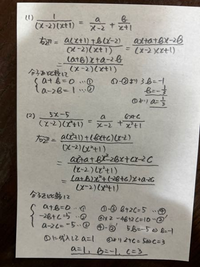 (1) 1/(x-2)(x+1) = a/x-2 + b/x+1
右辺 = a(x+1)+b(x-2)/(x-2)(x+1) = ax+a+bx-2b/(x-2)(x+1)
= (a+b)x+a-2b/(x-2)(x+1)
a+b=0 …①
a-2b=1 …②
①-②より 3b=-1
b=-1/3
a=1/3
(2) 5x-5/(x-2)(x²+1) = a/x-2 + bx+c/x²+1
右辺 = a(x²+1)+(bx+c)(x-2)/(x-2)(x²+1)
= ax²+a+bx²-2bx+cx-2c/(x-2)(x²+1)
= (a+b)x²+(-2b+c)x+a-2c/(x-2)(x²+1)
a+b=0 …①
-2b+c=5 …②
a-2c=-5 …③
①-③ b+2c=5 …④
-4b+2c=10 …⑤
5b=-5 b=-1
a=1
c=3
a=1, b=-1, c=3